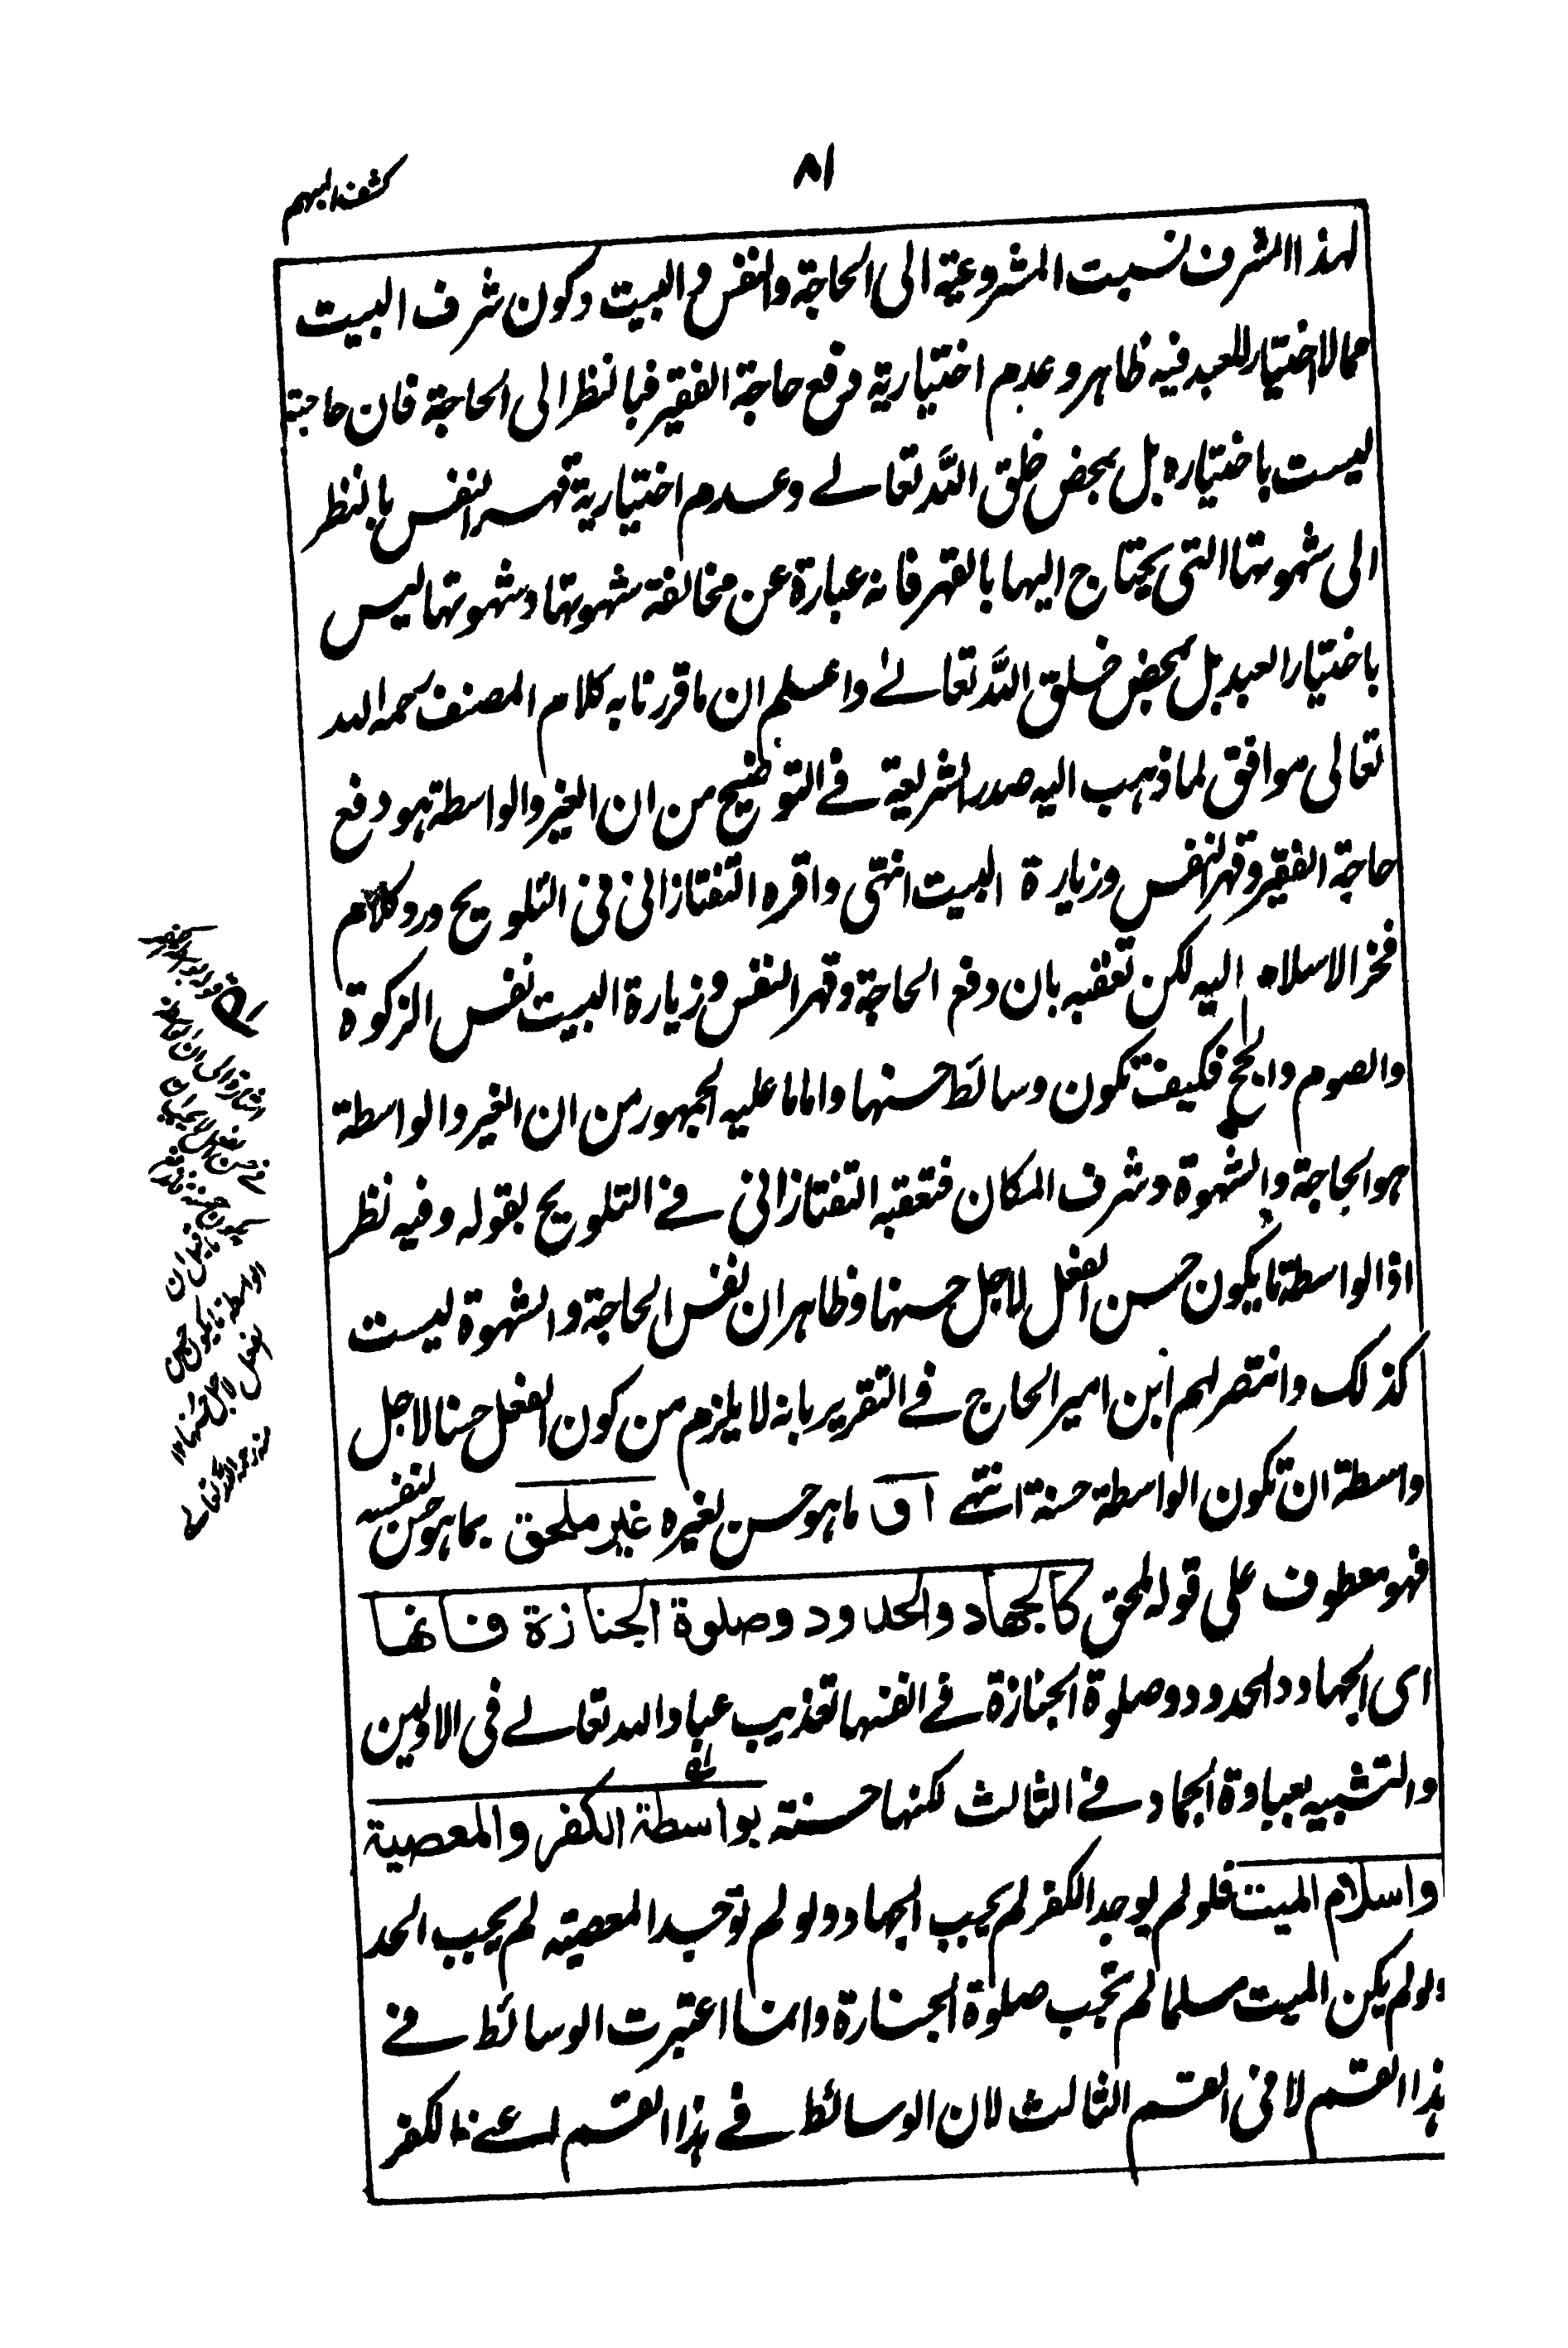 ٨١
كشف المبهم
لهذا الشرف نسبت المشروعية الى الحاجة والنفس والبيت وكون شرف البيت
مما لا اختيار للعبد فيه ظاهر وعدم اختيارية دفع حاجة الفقير فبالنظر الى الحاجة فان حاجته
ليست باختياره بل بمحض خلق الله تعالى وعدم اختيارية قهر النفس بالنظر
الى شهوتها التى يحتاج اليها بالقهر فانه عبارة عن مخالفة شهوتها وشهوتها ليس
باختيار العبد بل بمحض خلق الله تعالى واعلم ان ما قررنا به كلام المصنف رحمه الله
تعالى موافق لما ذهب اليه صدر الشريعة فى التوضيح من ان الغير والواسطة هو دفع
حاجة الفقير وقهر النفس وزيارة البيت انتهى واقره التفتازانى فى التلويح ورد كلام
فخر الاسلام اليه لكن تعقبه بان دفع الحاجة وقهر النفس وزيارة البيت نفس الزكوة
والصوم والحج فكيف تكون وسائط حسنها واما ما عليه الجمهور من ان الغير والواسطة
هو الحاجة والشهوة وشرف المكان فتعقبه التفتازانى فى التلويح بقوله وفيه نظر
اذ الواسطة ما يكون حسن الفعل لاجل حسنها وظاهر ان نفس الحاجة والشهوة ليست
كذلك وانتصر لهم ابن امير الحاج فى التقرير بانه لا يلزم من كون الفعل حسنا لاجل
واسطة ان تكون الواسطة حسنة انتهى او ما هو حسن لغيره غير ملحق بما هو حسن لنفسه
فهو معطوف على قوله ملحق كالجهاد والحدود وصلوة الجنازة فانها
اى الجهاد والحدود وصلوة الجنازة فى انفسها تعذيب عباد الله تعالى فى الاولين
والتشبيه بعبادة الجماد فى الثالث لكنها حسنة بواسطة الكفر والمعصية
واسلام الميت فلو لم يوجد الكفر لم يجب الجهاد ولو لم توجد المعصية لم يجب الحد
ولو لم يكن الميت مسلما لم تجب صلوة الجنازة وانما اعتبرت الوسائط فى
هذا القسم لا فى القسم الثالث لان الوسائط فى هذا القسم اعنى الكفر
الواسطة ما يكون حسن
الفعل لاجل حسنها ١٢
منه رحمه الله تعالى